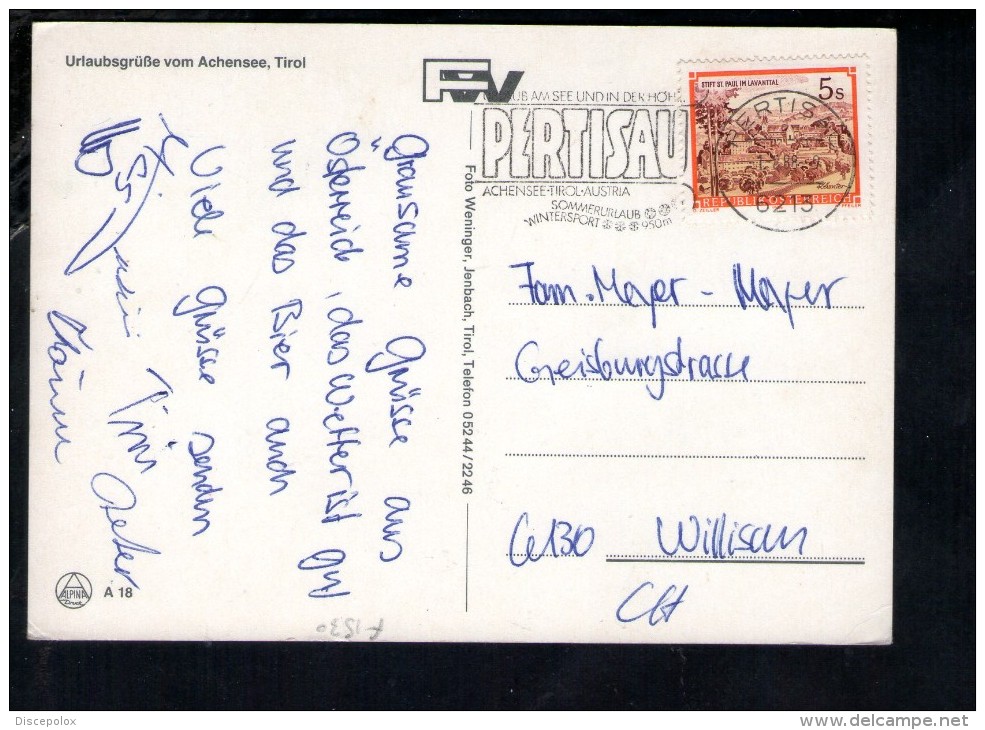 Urlaubsgrüße vom Achensee, Tirol
URLAUB AM SEE UND IN DER HÖH
PERTISAU
ACHENSEE·TIROL·AUSTRIA
SOMMERURLAUB
WINTERSPORT 950m
STIFT ST. PAUL IM LAVANTTAL
5s
REPUBLIK ÖSTERREICH
PERTIS
88
6213
Grausame Grüsse aus
Österreich, das Wetter ist gut
und das Bier auch
Viele Grüsse senden
Foto Weninger, Jenbach, Tirol, Telefon 05244/2246
Fam. Meyer - Meyer
Geisburgstrasse
6130 Willisau
CH
ALPINA
Druck
A 18
F 1530
Discepolox
www.delcampe.net